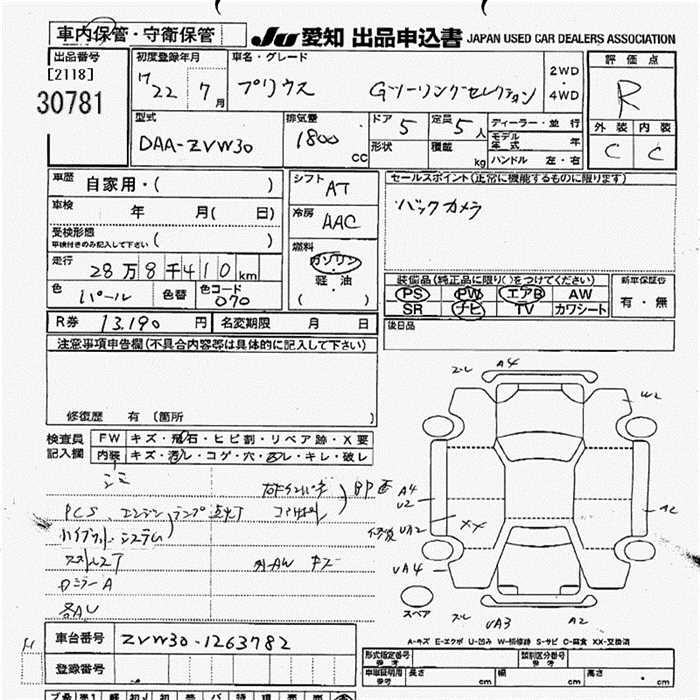 車内保管・守衛保管
JU 愛知 出品申込書 JAPAN USED CAR DEALERS ASSOCIATION
出品番号
[2118]
30781
初度登録年月
H 22 年 7 月
車名・グレード
プリウス Gツーリングセレクション
2WD
・
4WD
評価点
R
外装 内装
C C
型式
DAA-ZVW30
排気量
1800 cc
ドア 5
形状
定員 5 人
積載 kg
ディーラー・並行
モデル年式 年
ハンドル 左・右
車歴 自家用・( )
車検 年 月( 日)
受検形態
車検付きのみ記入して下さい ( )
走行 28万8千410km
色 パール 色替 色コード 070
シフト AT
冷房 AAC
燃料
ガソリン
・
軽・油
( )
セールスポイント(正常に機能するものに限ります)
バックカメラ
装備品(純正品に限り○をつけてください)
PS PW エアB AW
SR ナビ TV カワシート
新車保証書
有・無
後日品
R券 13,190 円 名変期限 月 日
注意事項申告欄(不具合内容等は具体的に記入して下さい)
修復歴 有 (箇所 )
検査員
記入欄
FW キズ・飛石・ヒビ割・リペア跡・X要
内装 キズ・汚レ・コゲ・穴・スレ・キレ・破レ
シミ
PCS、エンジン ランプ点灯
ハイブリッドシステム
コアサポ
歪
外AW キズ
各AU
A4
W2
A4
U2
UA2
XX
UA4
UA3
A2
スペア
A-キズ E-エクボ U-凹み W-補修跡 S-サビ C-腐食 XX-交換済
車台番号 ZVW30-1263782
登録番号
形式指定番号
参考
類別区分番号
参考
車車証明用
参考
長さ cm 幅 cm 高さ cm